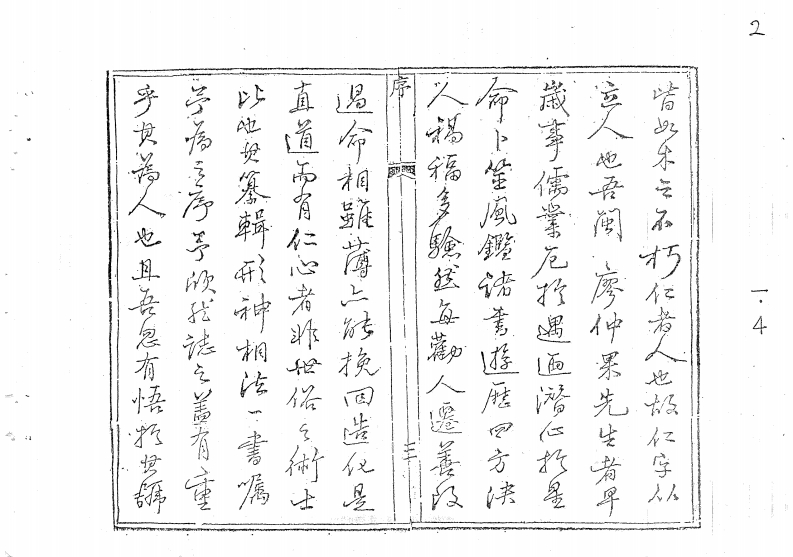 2
皆如木之不朽仁者人也故仁字从
立人也吾閩廖仲果先生者早
歲事儒業厄於遇迺潛心於星
命卜筮風鑑諸書遊歷四方決
人禍福多驗然每勸人遷善改
序
三
過命相雖薄亦能挽回造化是
直道而有仁心者非世俗之術士
比也其纂輯形神相法一書囑
予為之序予欣然誌之蓋有重
乎其為人也且吾忽有悟於其號
一.4